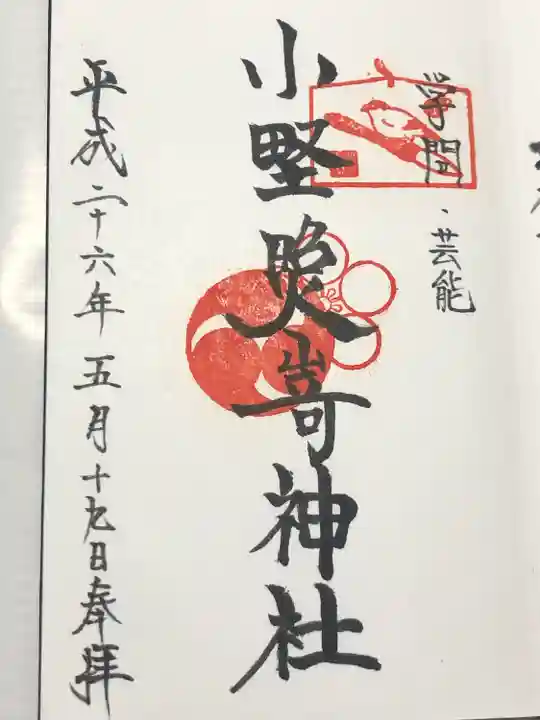 学問・芸能
小野照崎神社
平成二十六年五月十九日奉拝